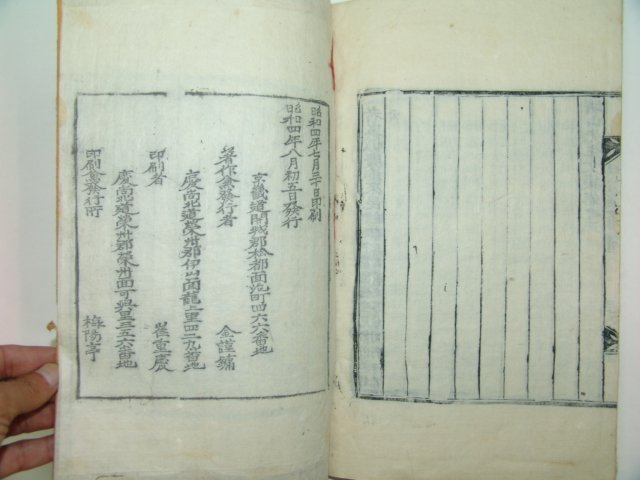 昭和四年七月三十日印刷
昭和四年八月初五日發行
京畿道開城郡松都面池町四六六番地
著作兼發行者 金謹鏞
慶尚北道榮州郡伊山面龍上里四二九番地
印刷者 崔重慶
慶尚北道榮州郡榮州面可興里三五六番地
印刷兼發行所 梅陽亭